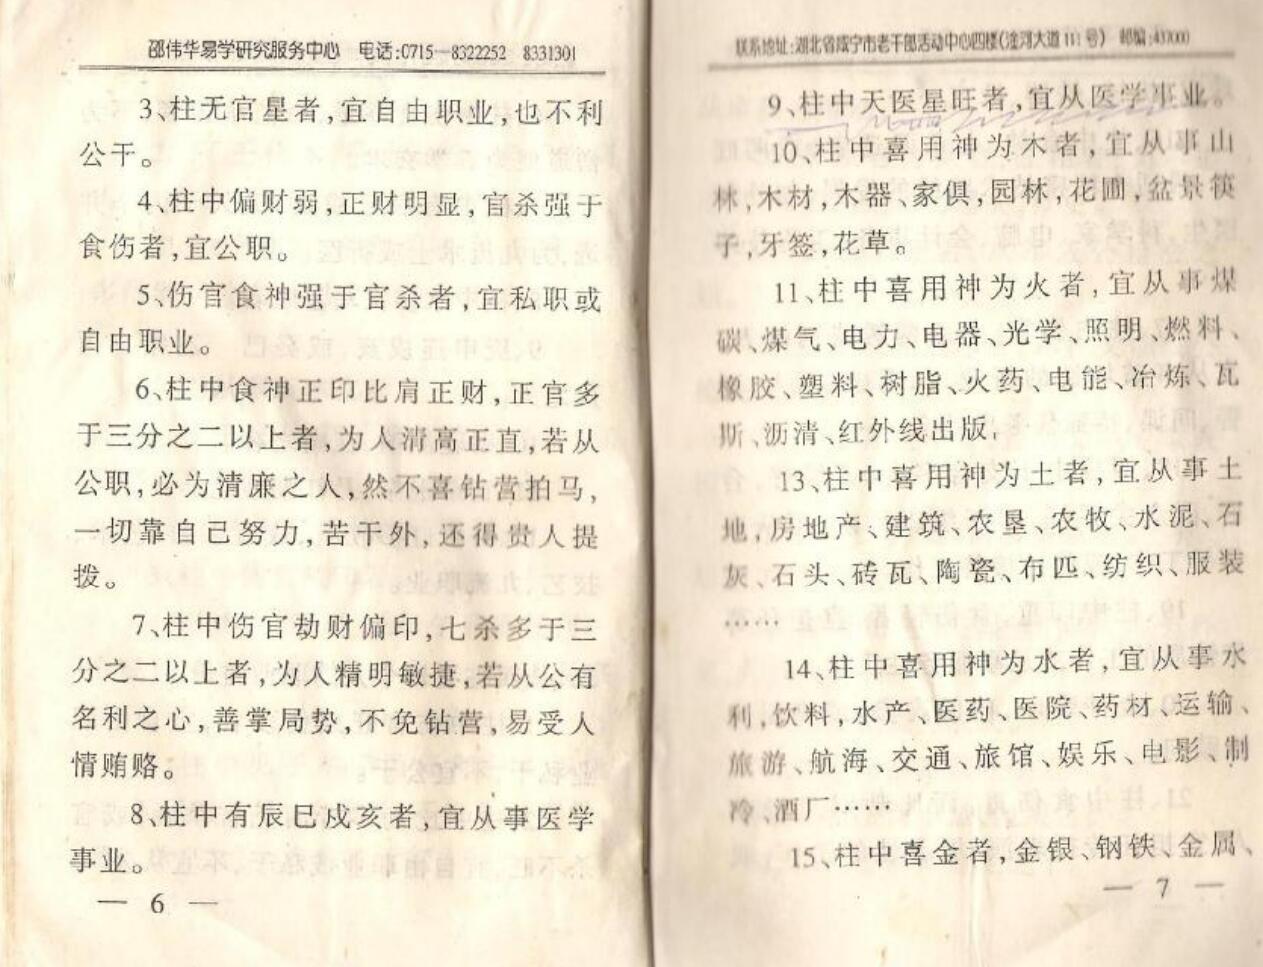 邵伟华易学研究服务中心 电话:0715—8322252 8331301
3、柱无官星者,宜自由职业,也不利
公干。
4、柱中偏财弱,正财明显,官杀强于
食伤者,宜公职。
5、伤官食神强于官杀者,宜私职或
自由职业。
6、柱中食神正印比肩正财,正官多
于三分之二以上者,为人清高正直,若从
公职,必为清廉之人,然不喜钻营拍马,
一切靠自己努力,苦干外,还得贵人提
拨。
7、柱中伤官劫财偏印,七杀多于三
分之二以上者,为人精明敏捷,若从公有
名利之心,善掌局势,不免钻营,易受人
情贿赂。
8、柱中有辰巳戍亥者,宜从事医学
事业。
— 6 —
联系地址:湖北省咸宁市老干部活动中心四楼(淦河大道111号) 邮编:
9、柱中天医星旺者,宜从医学事业。
10、柱中喜用神为木者,宜从事山
林,木材,木器、家俱,园林,花圃,盆景筷
子,牙签,花草。
11、柱中喜用神为火者,宜从事煤
碳、煤气、电力、电器、光学、照明、燃料、
橡胶、塑料、树脂、火药、电能、冶炼、瓦
斯、沥清、红外线出版,
13、柱中喜用神为土者,宜从事土
地,房地产、建筑、农垦、农牧、水泥、石
灰、石头、砖瓦、陶瓷、布匹、纺织、服装
……
14、柱中喜用神为水者,宜从事水
利,饮料,水产、医药、医院、药材、运输、
旅游、航海、交通、旅馆、娱乐、电影、制
冷、酒厂……
15、柱中喜金者,金银、钢铁、金属、
— 7 —